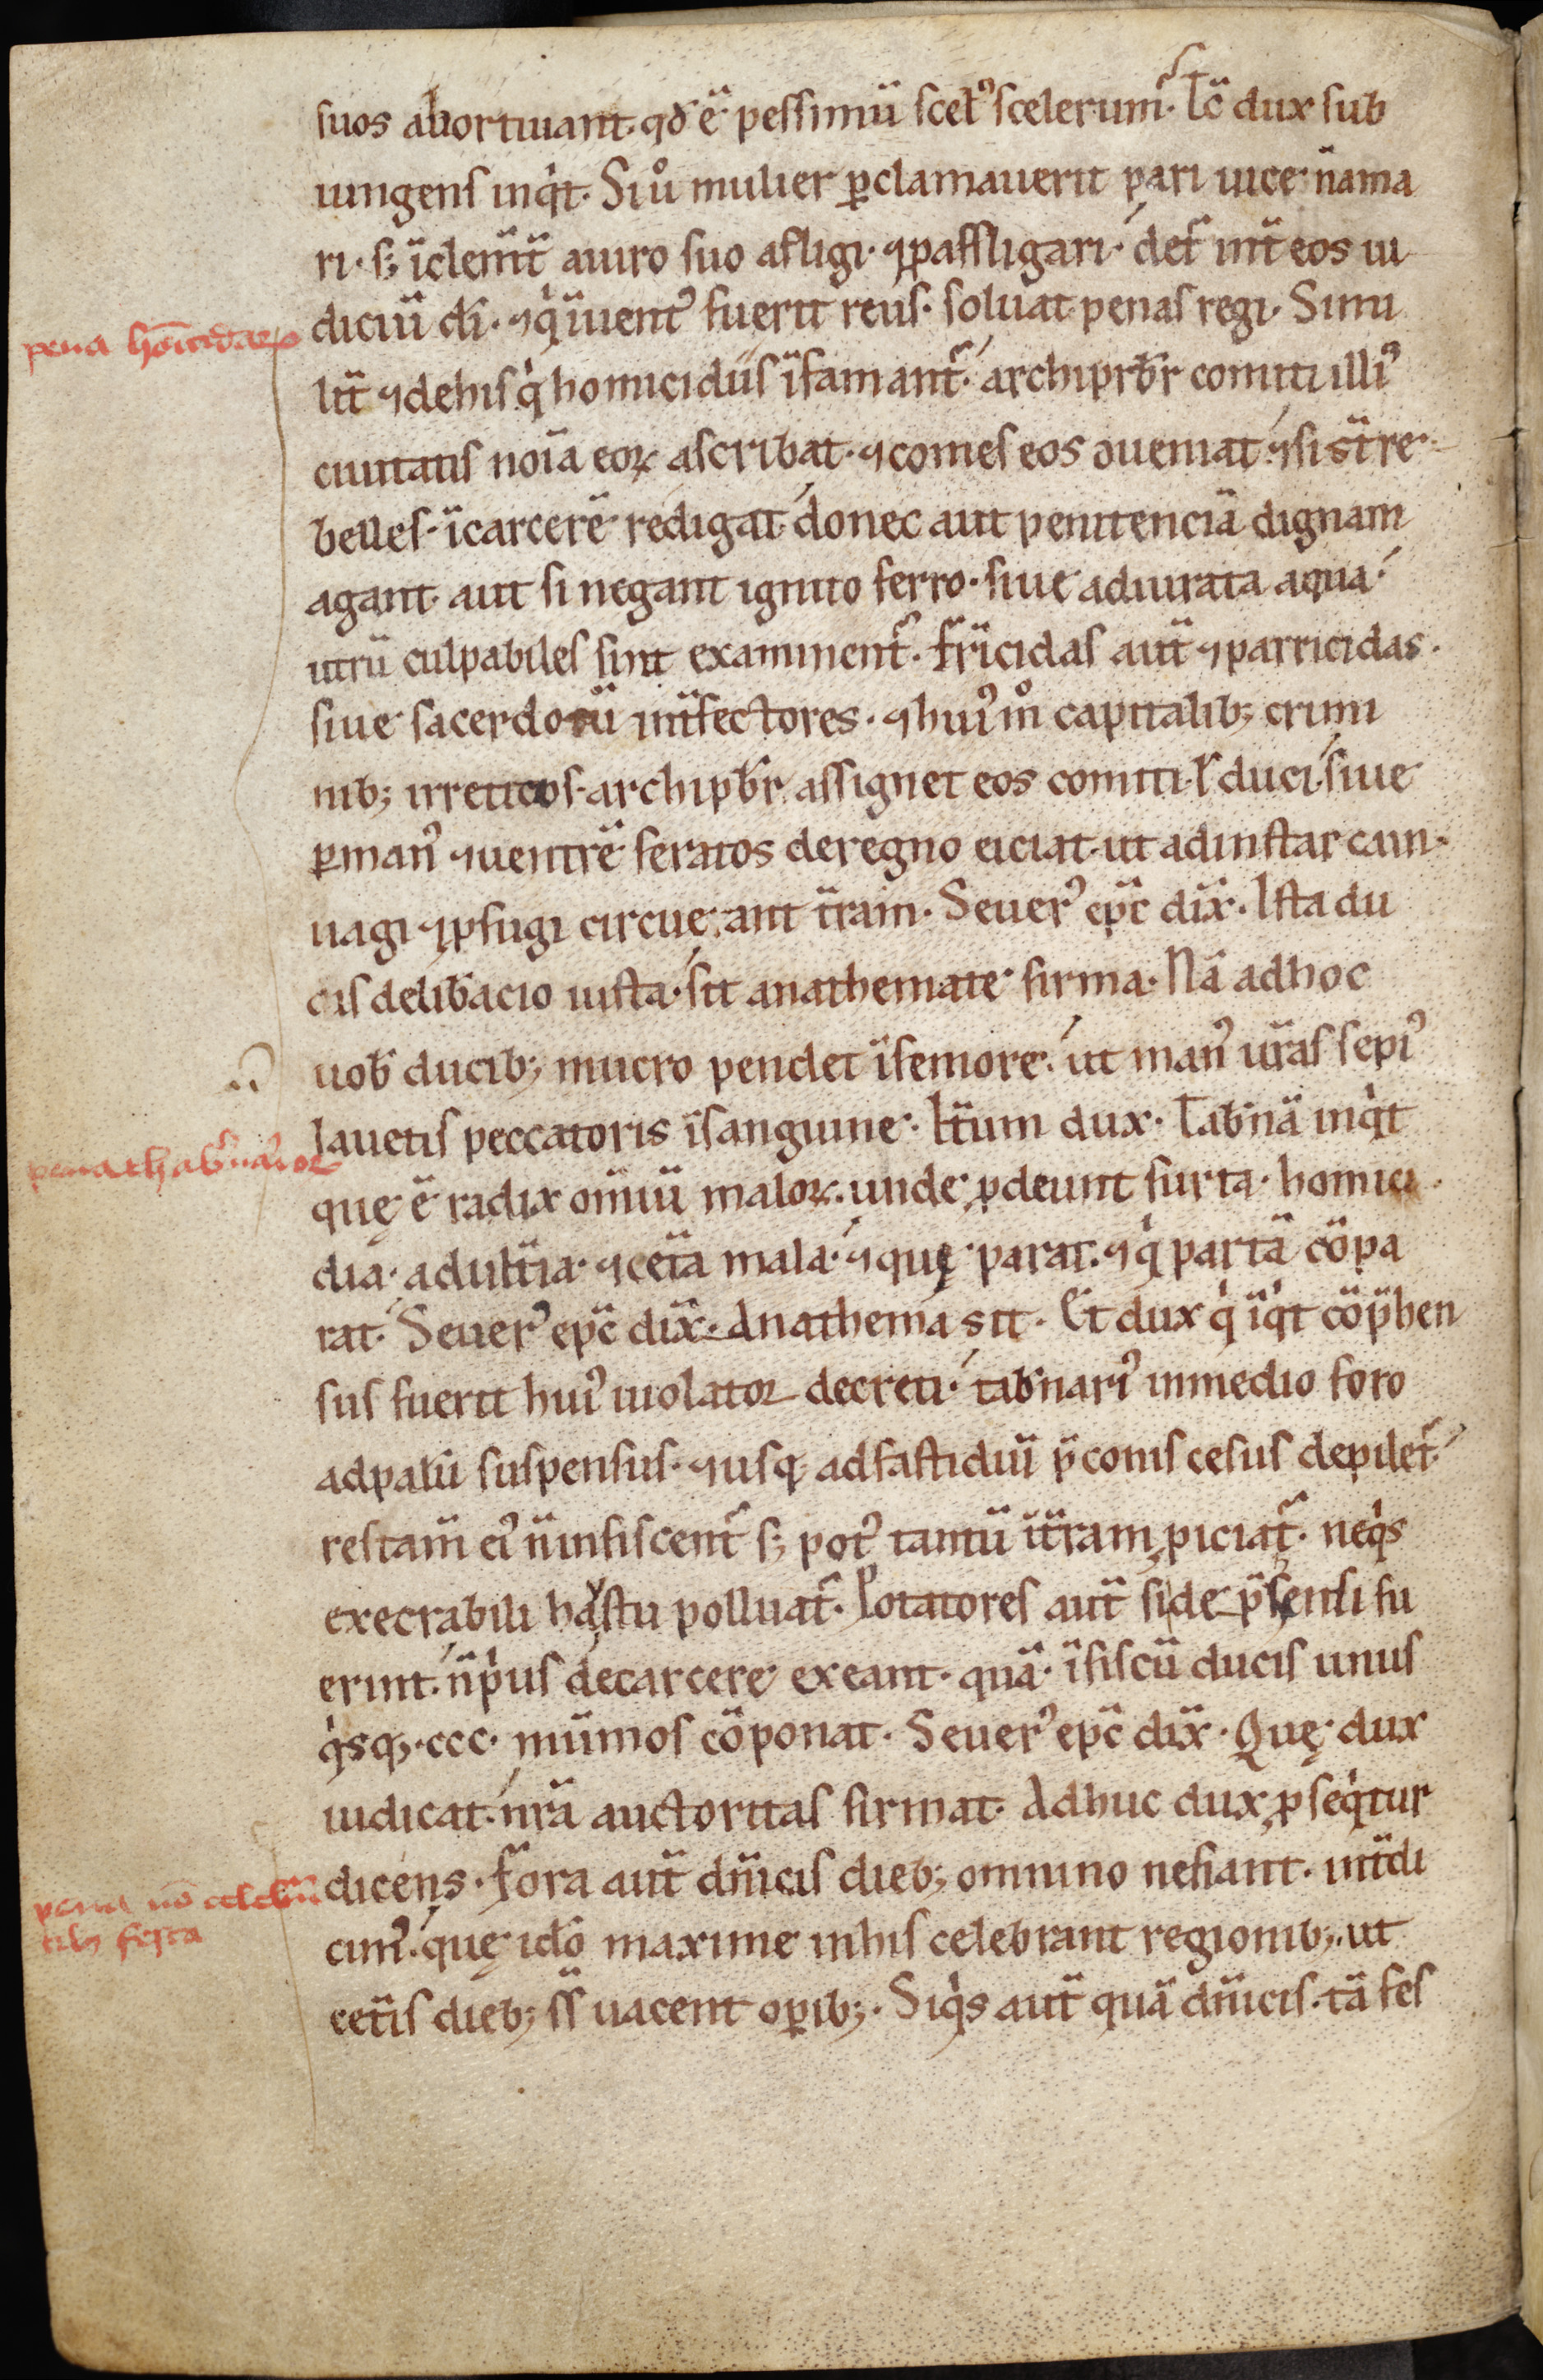 suos abortiuant. qđ ē pessimū scel᷒ scelerum. Tc̄ dux sub
iungens inq̇t. Si ů mulier ꝓclamauerit pari uice n̄ ama
ri. sꝫ īclem̄t̄ a uiro suo afligi. ⁊ ꝓfaffligari. det᷑ int̄ eos iu
diciū dī. ⁊ q̇ īuent᷒ fuerit reus. soluat penas regi. Simi
pena ho̅icidaꝝ
lit̄ ⁊ de his q̇ homicidiis īfamant᷑. archipr̄br comiti illi᷒
ciuitatis noīa eoꝝ ascribat. ⁊ comes eos ↄueniat. ⁊ si st̄ re
belles. ī carcerē redigat donec aut penitenciā dignam
agant. aut si negant ignito ferro. siue adiurata aqua.
utrū culpabiles sint examinent᷑. fr̄icidas aut̄ ⁊ parricidas.
siue sacerdotū int̄fectores. ⁊ hui᷒ m̊ capitalibꝫ crimi
nibꝫ irreticos. archipb̄r assignet eos comiti. ł duci. siue
ꝑ man᷒ ⁊ uentrē feratos de regno eiciat. ut ad instar cain.
uagi ⁊ ꝓfugi circueant t̄ram. Seuer᷒ ep̄c dix̄. Ista du
cis delib̄acio iusta. sit anathemate firma. Nā ad hoc
uob̄ ducibꝫ mucro pendet ī femore. ut man᷒ ur̄as sepi᷒
lauetis peccatoris ī sanguine. It̄um dux. Tab̄nā inq̇t
pena thab̄narioꝝ
quę ē radix om̄iū maloꝝ. unde ꝓdeunt furta. homici
dia. adult̄ia. ⁊ cet̄a mala. ⁊ quę parat. ⁊ q̇ partā cōpa
rat. Seuer᷒ ep̄c dix̄. Anathema sit. Et dux q̇ īq̇t cōp̄hen
sus fuerit hui᷒ uiolator decreti. tab̄nari᷒ in medio foro
ad palū suspensus. ⁊ usqꝫ ad fastidiū p̄conis cesus depilet᷑.
res tam̄ ei᷒ n̄ infiscent᷑ sꝫ pot᷒ tantū ī t̄ram ꝓiciat᷑. ne q̇s
execrabili haustu polluat᷑. Potatores aut̄ si dep̄hensi fu
erint. n̄ pi᷒us de carcere exeant. quā. ī fiscū ducis unus
q̇sqꝫ. ccc. nūmos cōponat. Seuer᷒ ep̄c dix̄. Quę dux
iudicat. nr̄a auctoritas firmat. Adhuc dux ꝓseq̇tur
dicens. Fora aut̄ dn̄icis diebꝫ omnino ne fiant. int̄di
pena nō celebrā
tibꝫ festa
cim᷒. quę ido̅ maxime in his celebrant regionibꝫ. ut
cet̄is diebꝫ ss̄ uacent oꝑibꝫ. Si q̇s aut̄ quā dn̄icis. tā fes